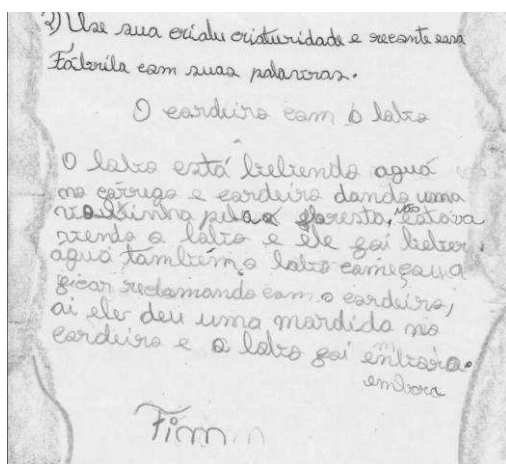 2) Use sua criatu criaturidade e reconte essa
Fábrila com suas palavras.
O cordeiro com o lobo
O lobo está bebendo aguá
no córrego e cordeiro dando uma
voltinha pelas floresta, não estava
vendo o lobo e ele foi beber
agua também o lobo começou a
ficar reclamando com o cordeiro,
ai ele deu uma mardida no
cordeiro e o lobo foi embora.
embora
Fim